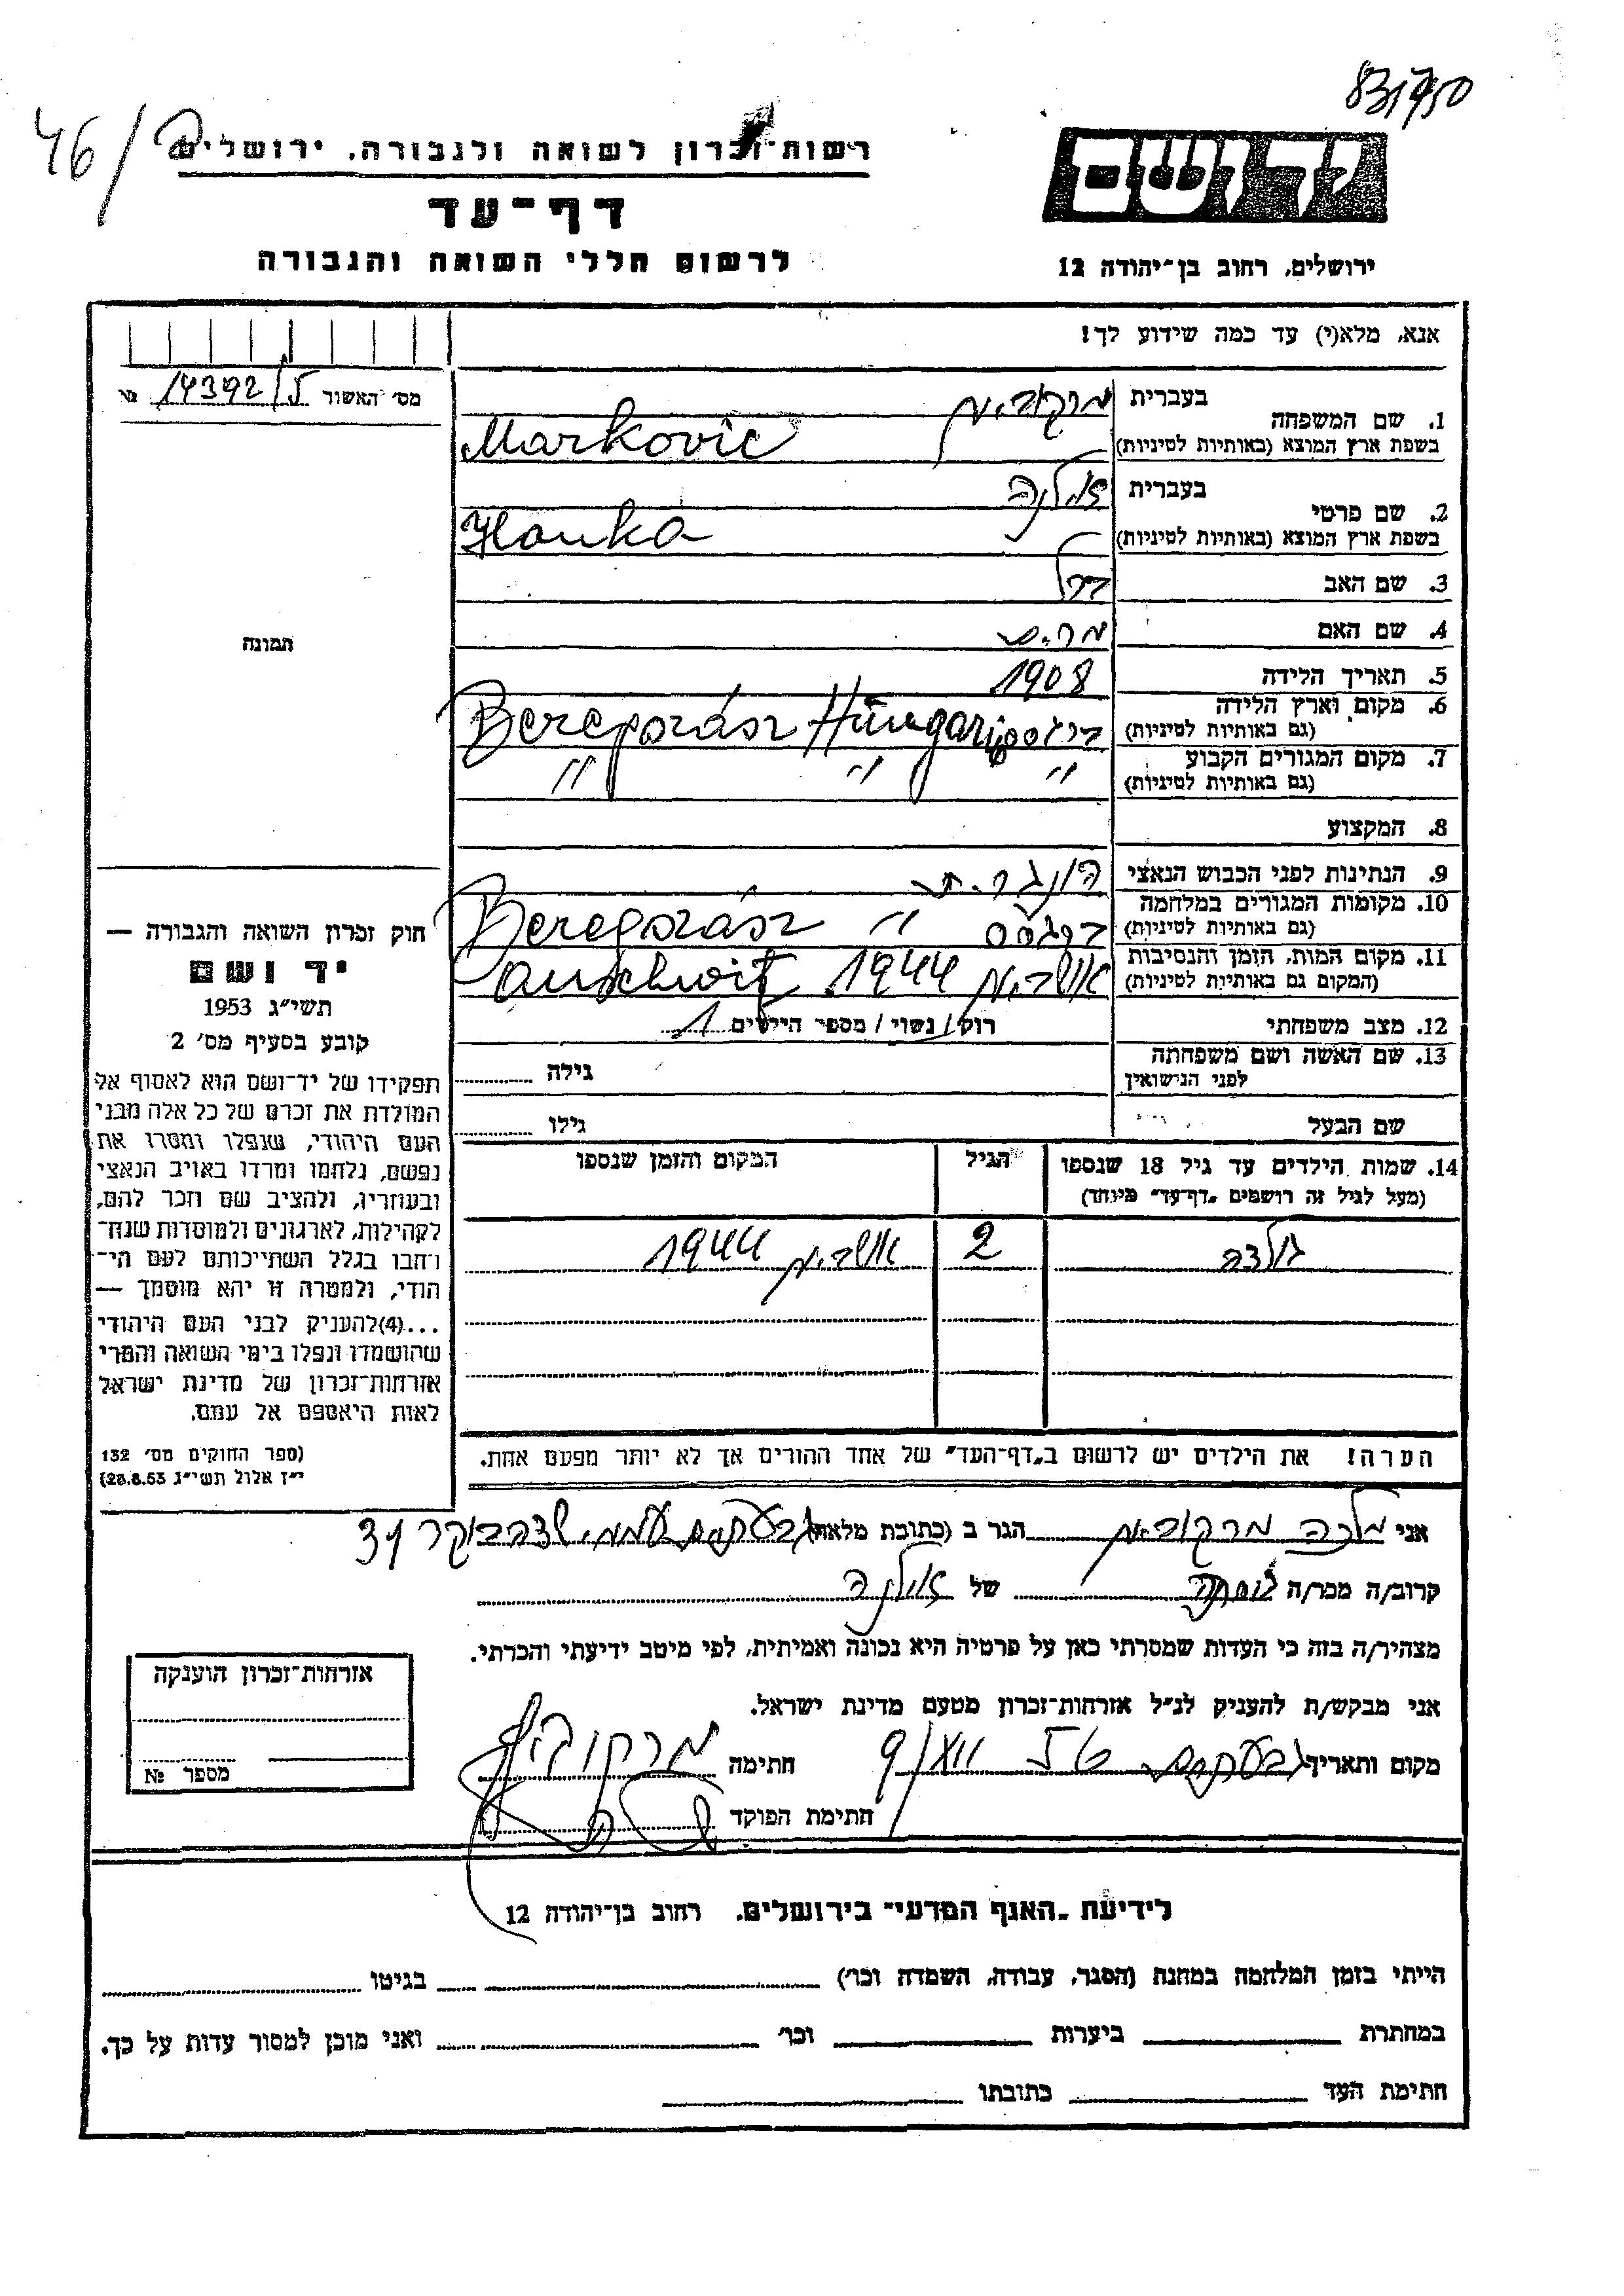 46/
רשות-זכרון לשואה ולגבורה, ירושלים
דף-עד
לרשום חללי השואה והגבורה
יד ושם
ירושלים, רחוב בן-יהודה 12
אנא, מלא(י) עד כמה שידוע לך!
מס' האשור 14392/5 №
1. שם המשפחה
בעברית מרקוביץ
בשפת ארץ המוצא (באותיות לטיניות) Markovic
2. שם פרטי
בעברית אילנקה
בשפת ארץ המוצא (באותיות לטיניות) Ilonka
3. שם האב
4. שם האם
5. תאריך הלידה 1908
6. מקום וארץ הלידה
(גם באותיות לטיניות) Beregszász Hungaria ברגסס
7. מקום המגורים הקבוע
(גם באותיות לטיניות) " " "
8. המקצוע
9. הנתינות לפני הכבוש הנאצי הונגרית
10. מקומות המגורים במלחמה
(גם באותיות לטיניות) Beregszász " ברגסס
11. מקום המות, הזמן והנסיבות
(המקום גם באותיות לטיניות) אושויץ 1944 Auschwitz
12. מצב משפחתי רווק / נשוי / מספר הילדים 1
13. שם האשה ושם משפחתה
לפני הנישואין גילה
שם הבעל גילו
14. שמות הילדים עד גיל 18 שנספו הגיל המקום והזמן שנספו
(מעל לגיל זה רושמים "דף-עד" מיוחד)
גולדה 2 אושויץ 1944
הערה! את הילדים יש לרשום ב"דף-העד" של אחד ההורים אך לא יותר מפעם אחת.
תמונה
חוק זכרון השואה והגבורה —
יד ושם
תשי"ג 1953
קובע בסעיף מס' 2
תפקידו של יד-ושם הוא לאסוף אל
המולדת את זכרם של כל אלה מבני
העם היהודי, שנפלו ומסרו את
נפשם, נלחמו ומרדו באויב הנאצי
ובעוזריו, ולהציב שם וזכר להם,
לקהילות, לארגונים ולמוסדות שנח-
רחבו בגלל השתייכותם לעם הי-
הודי, ולמטרה זו יהא מוסמך —
...(4)להעניק לבני העם היהודי
שהושמדו ונפלו בימי השואה והמרי
אזרחות-זכרון של מדינת ישראל
לאות היאספם אל עמם.
(ספר החוקים מס' 132
י"ז אלול תשי"ג 28.8.53)
אני מלכה מרקוביץ הגר ב (כתובת מלאה) גבעתיים
קרוב/ה מכר/ה של אילנקה
מצהיר/ה בזה כי העדות שמסרתי כאן על פרטיה היא נכונה ואמיתית, לפי מיטב ידיעתי והכרתי.
אני מבקש/ת להעניק לנ"ל אזרחות-זכרון מטעם מדינת ישראל.
מקום ותאריך גבעתיים חתימה מרקוביץ
חתימת הפוקד
אזרחות-זכרון הוענקה
מספר №
לידיעת "האגף המדעי" בירושלים, רחוב בן-יהודה 12
הייתי בזמן המלחמה במחנה (הסגר, עבודה, השמדה וכו') בגיטו
במחתרת ביערות וכו' ואני מוכן למסור עדות על כך.
חתימת העד כתובתו